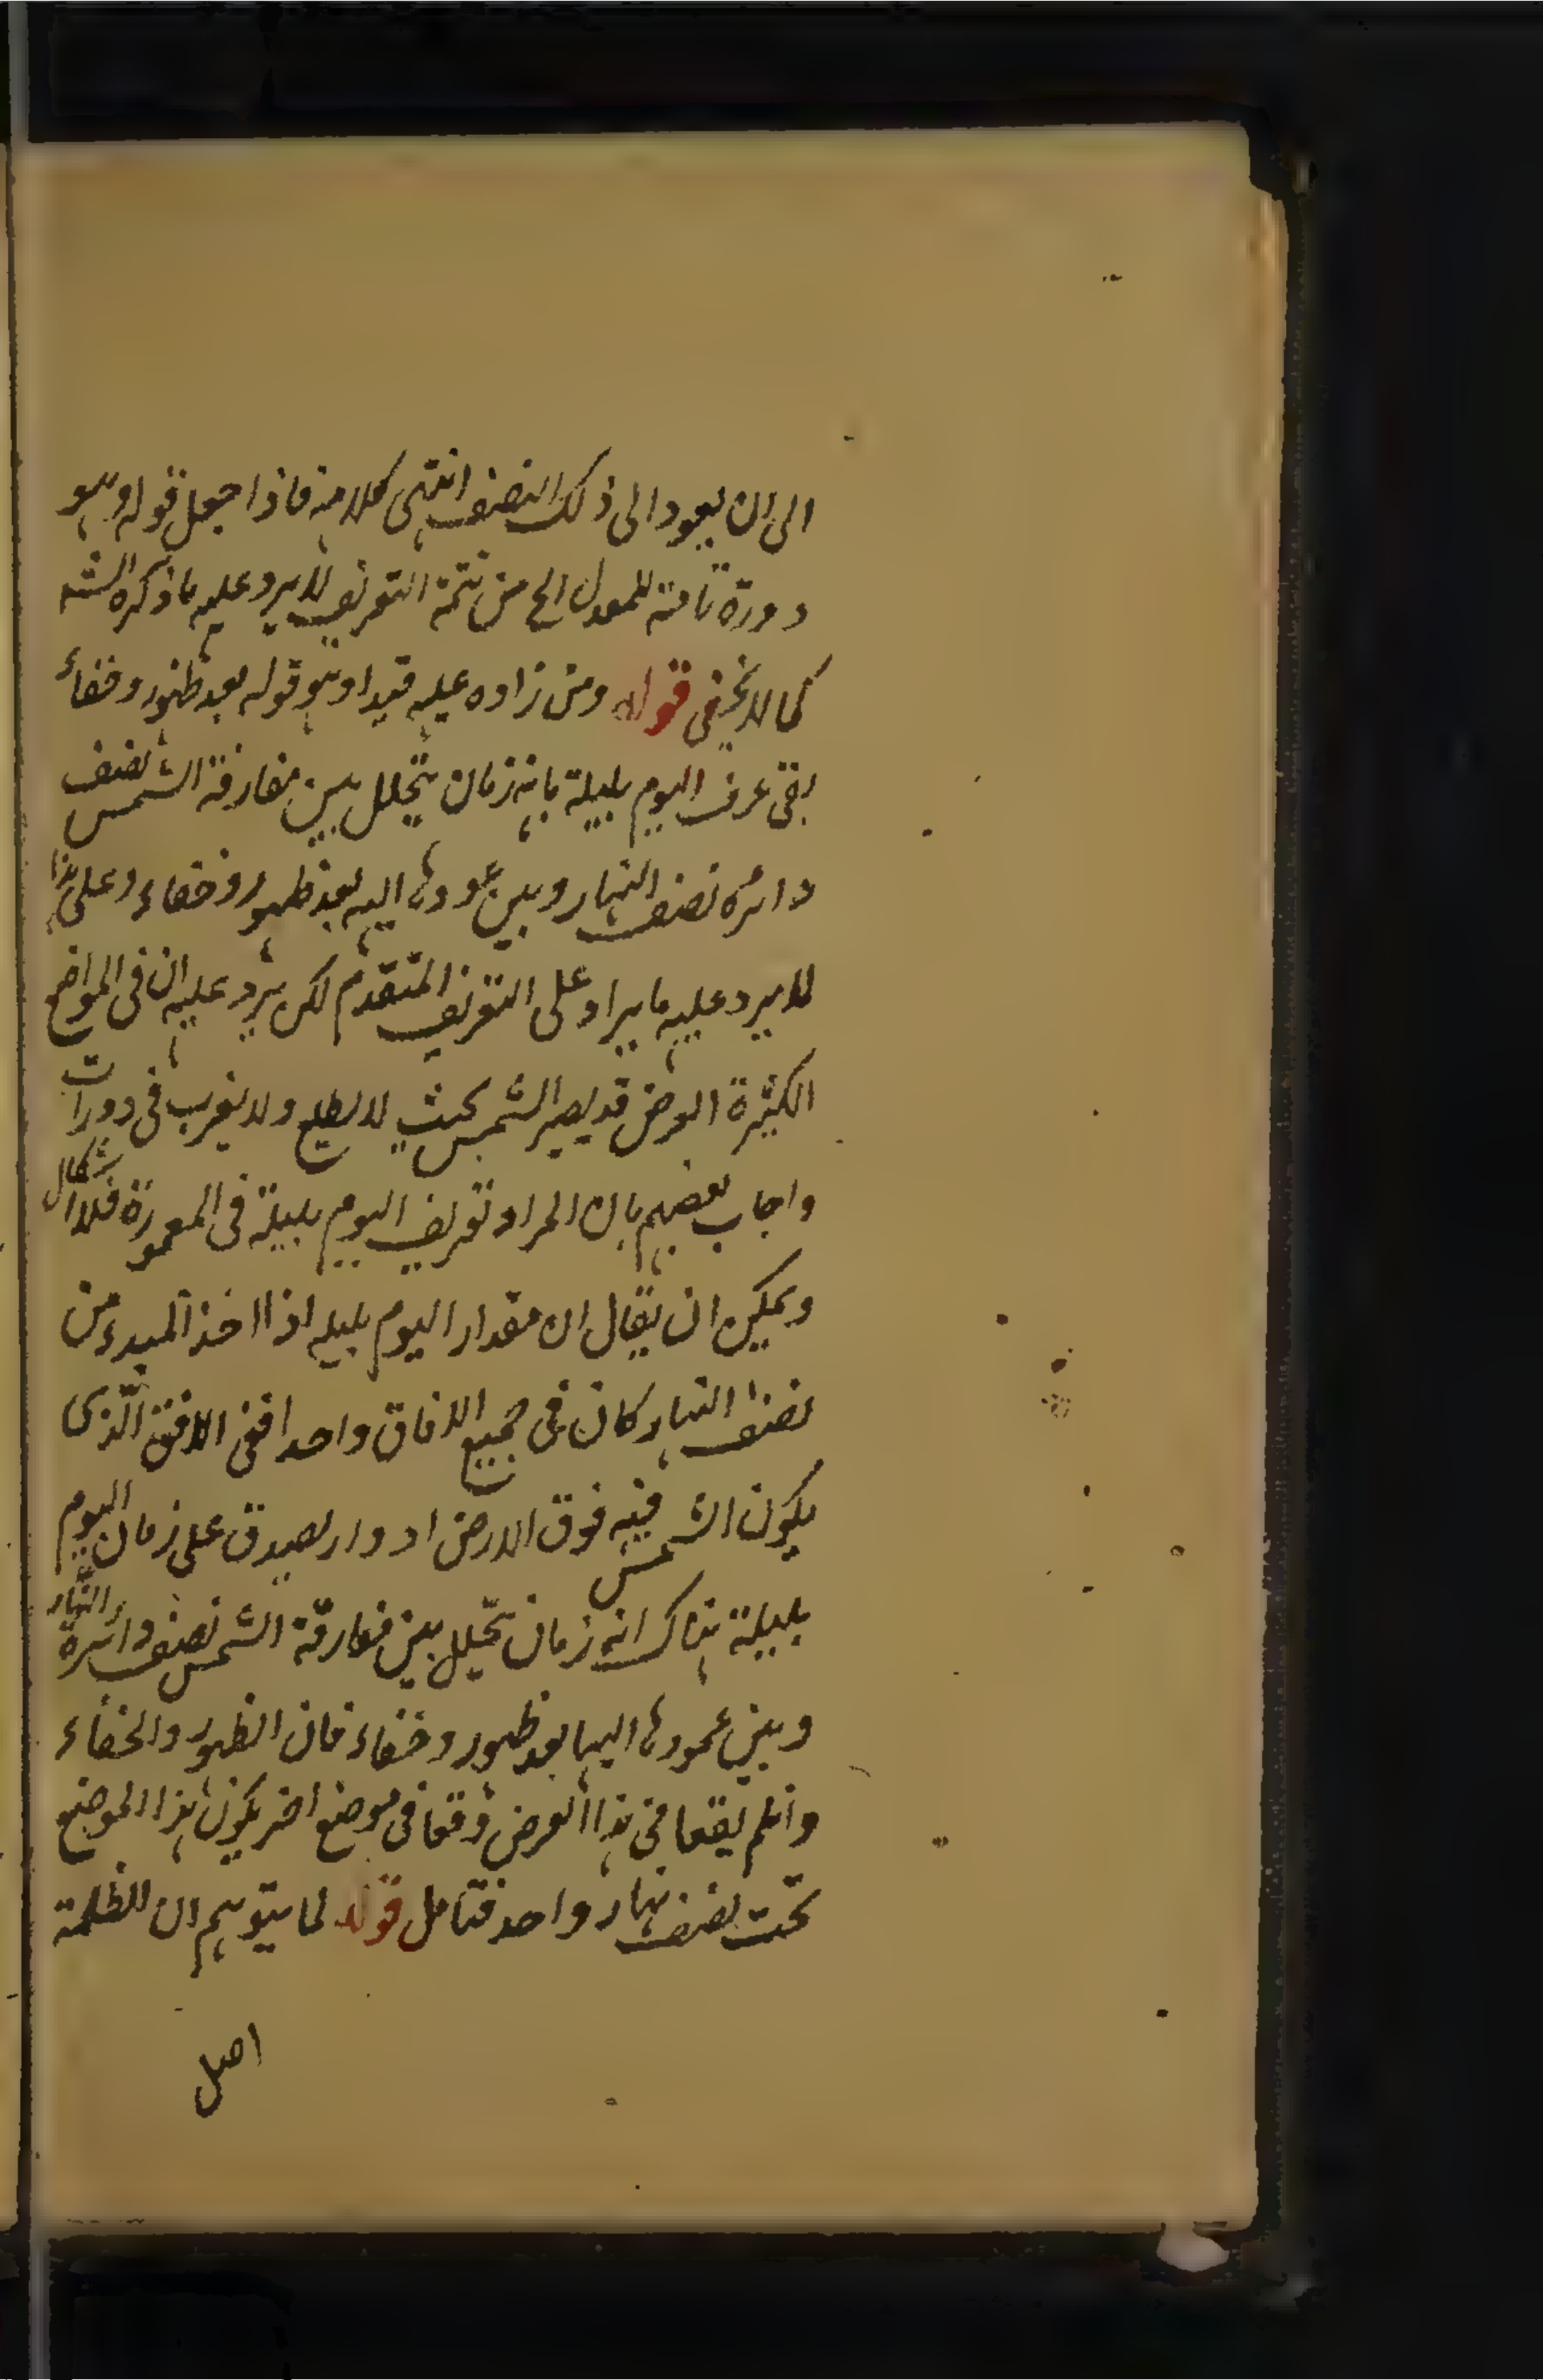 الى ان يعود الى ذلك النصف انتهى كلامه فاذا جعل قوله وهو
دورة تامة للمعدل الخ من تتمة التعريف لا يرد عليه ما ذكره الشه
كما لا يخفى قوله ومن زاده عليه قيدا وهو قوله بعد ظهور وخفاء
عرف اليوم بليلة بانه زمان يتخلل بين مفارقة الشمس نصف
دائرة نصف النهار وبين عودها اليه بعد ظهور وخفاء وعلى هذا
لا يرد عليه ما يراد على التعريف المتقدم لكن يرد عليه ان في المواضع
الكثيرة العرض قد يصير الشمس بحيث لا يطلع ولا يغرب في دورات
واجاب بعضهم بان المراد تعريف اليوم بليلة في المعمورة فلا اشكال
ويمكن ان يقال ان مقدار اليوم بليله اذا اخذ المبدء من
نصف النهار كان في جميع الافاق واحدا ففي الافق الذى
يكون الشمس فيه فوق الارض ادوار يصدق على زمان اليوم
بليلة هناك انه زمان يتخلل بين مفارقة الشمس نصف دائرة النهار
وبين عمودها اليها بعد ظهور وخفاء فان الظهور والخفاء
وانلم يقعا في هذا العرض وقعا في موضع اخر يكون هذا الموضع
تحت نصف نهار واحد فتامل قوله لما يتوهم ان الظلمة
اصل